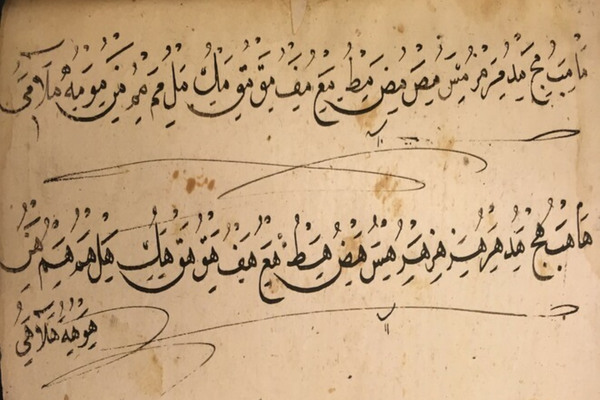 ما مب مج مد مر مز مس مص مض مط مع مف مق مق مك مل مم مم من مو مه ملا مى
ها هب هج هد هر هز هر هس هض هط هع هف هق هق هك هل هم هم هن
هو هه هلا هى